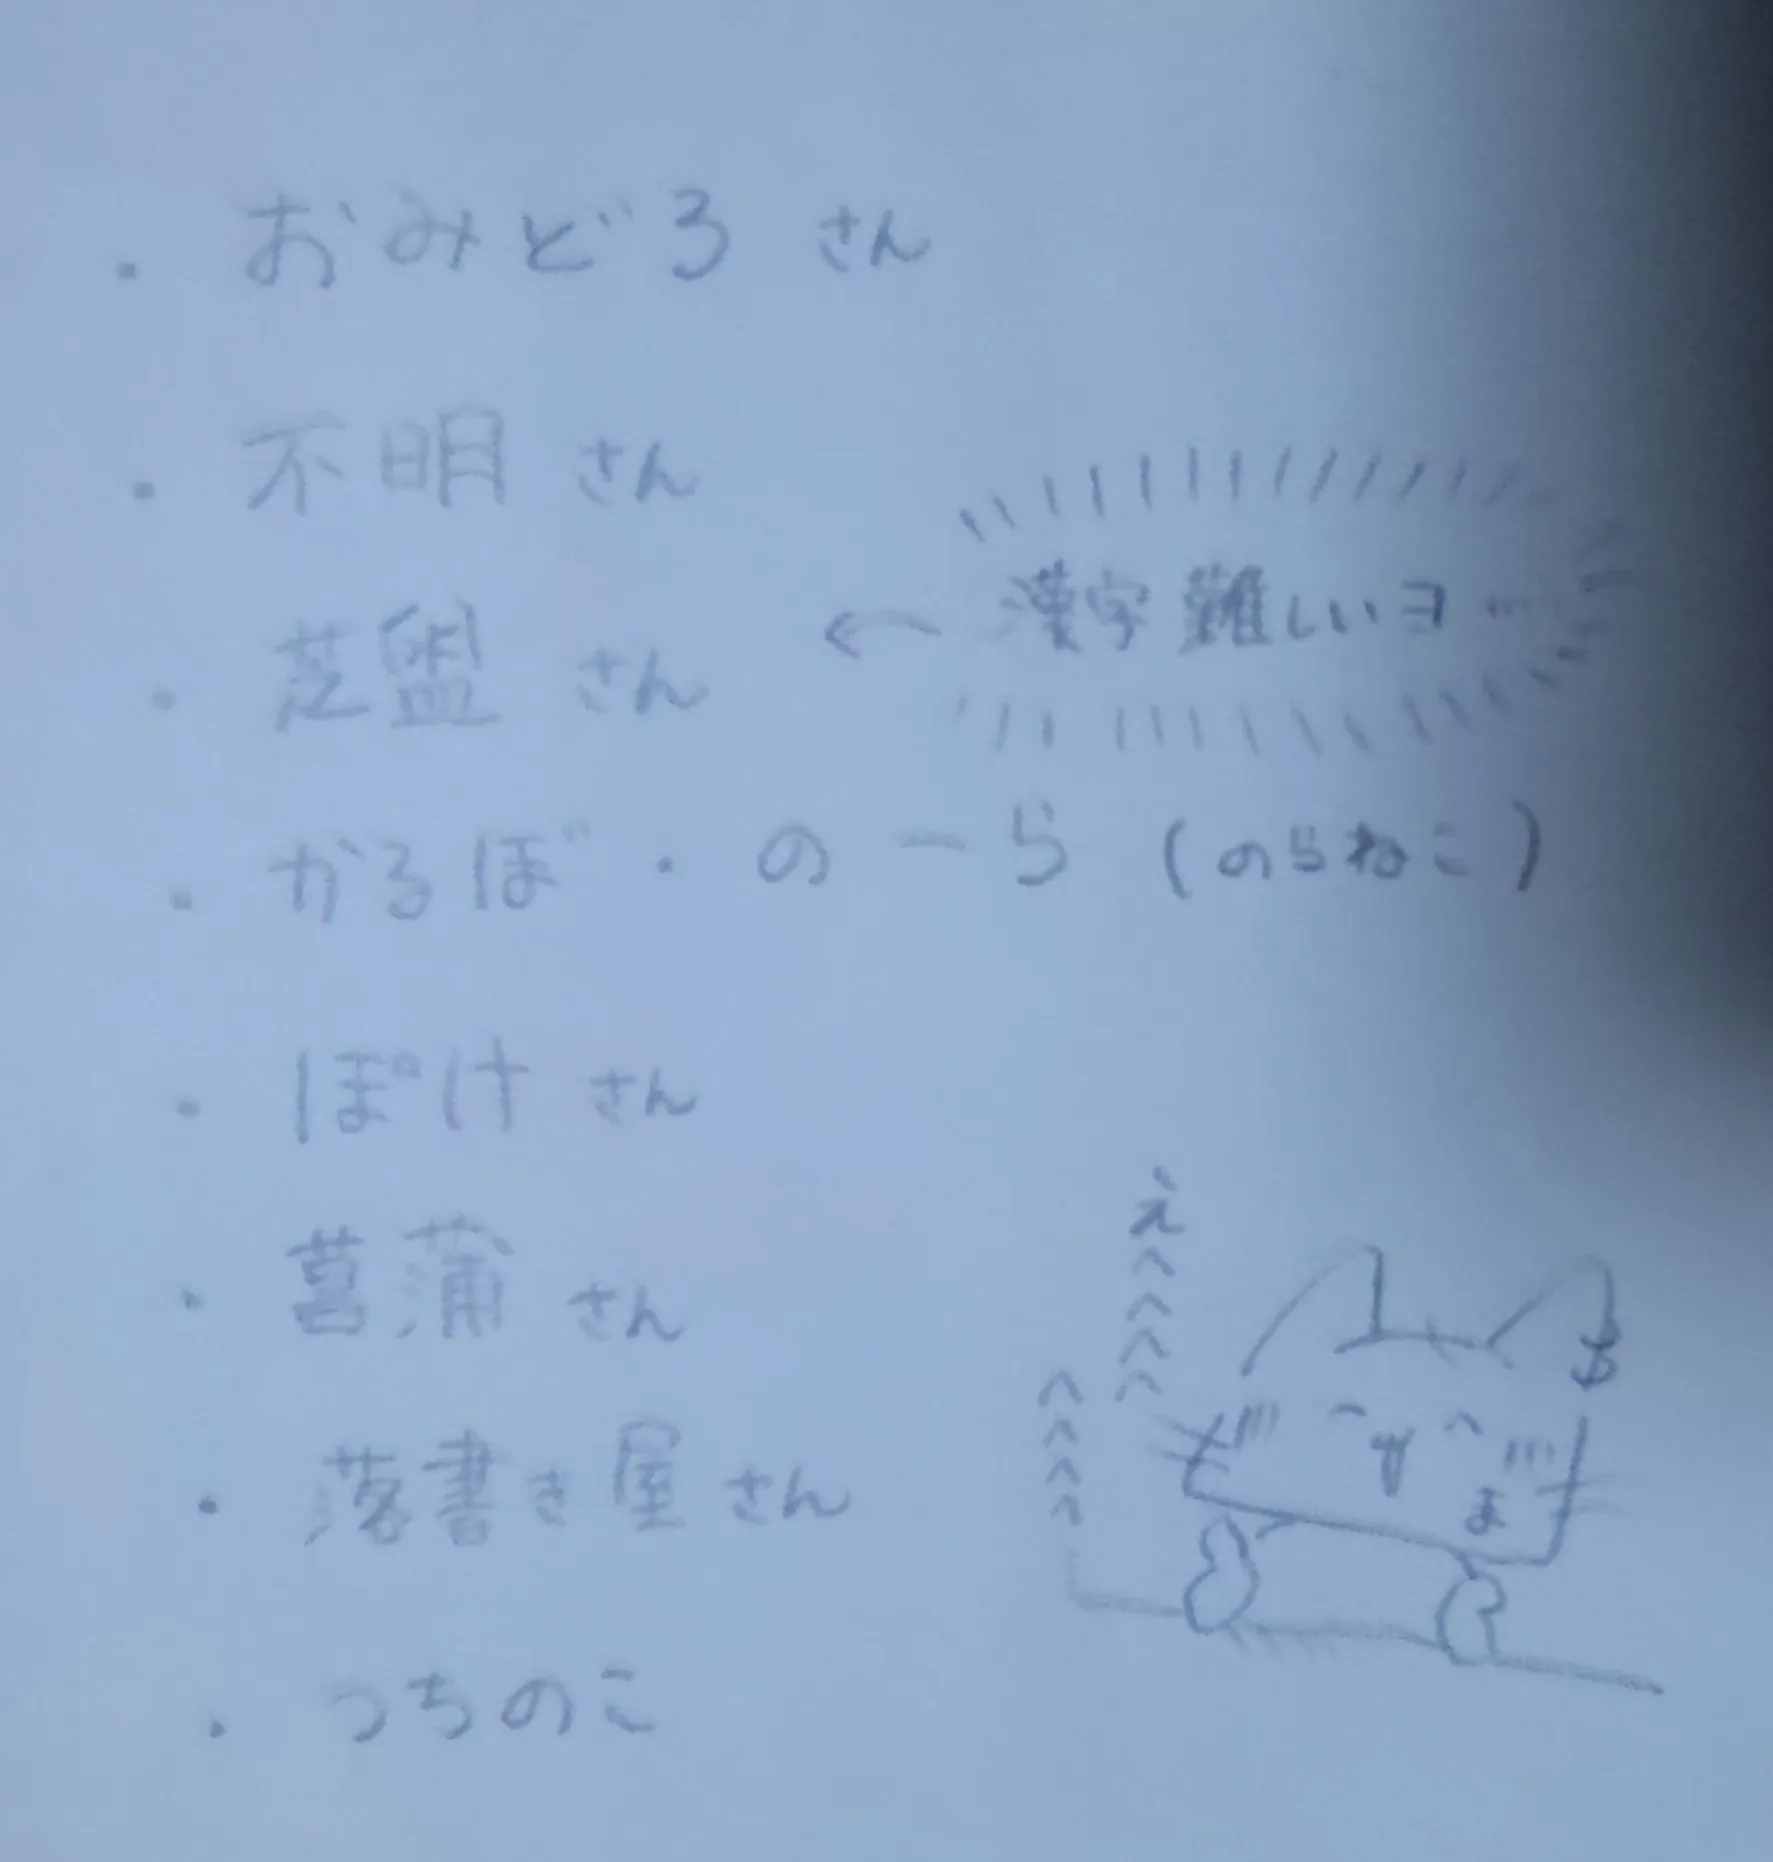 ・おみどろ さん
・不明 さん
← 漢字難しいヨ…
さん
・かるぼ・のーら (のらねこ)
・ぽけ さん
・菖蒲 さん
・落書き屋 さん
・つちのこ
え
へへへへ
へへへへ